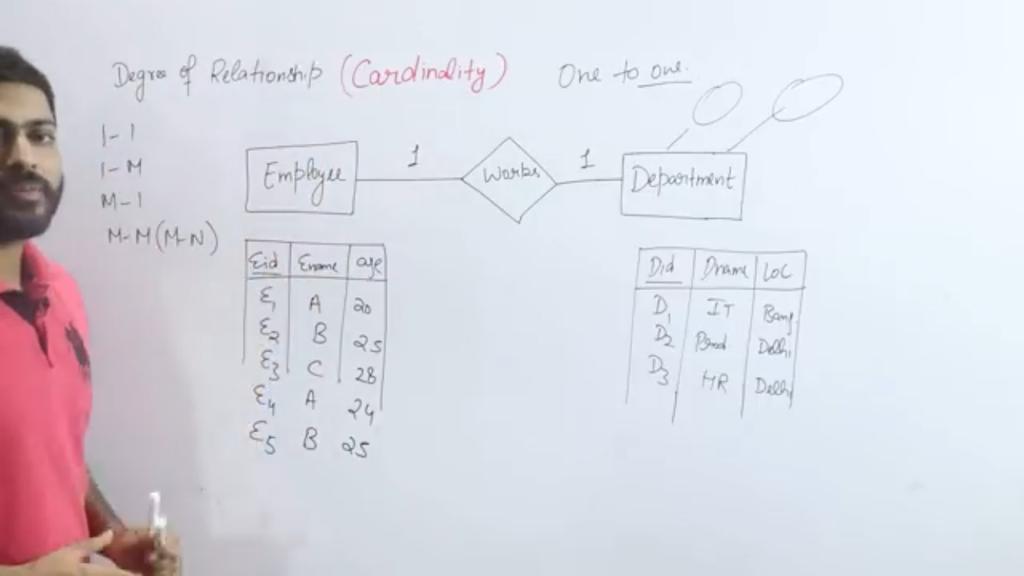 Degree of Relationship (Cardinality) One to one.
1-1
1-M
M-1
M-M (M-N)
Employee 1 Works 1 Department
Eid Ename age
E1 A 20
E2 B 25
E3 C 28
E4 A 24
E5 B 25
Did Dname Loc
D1 IT Bang
D2 Prod Delhi
D3 HR Delhi